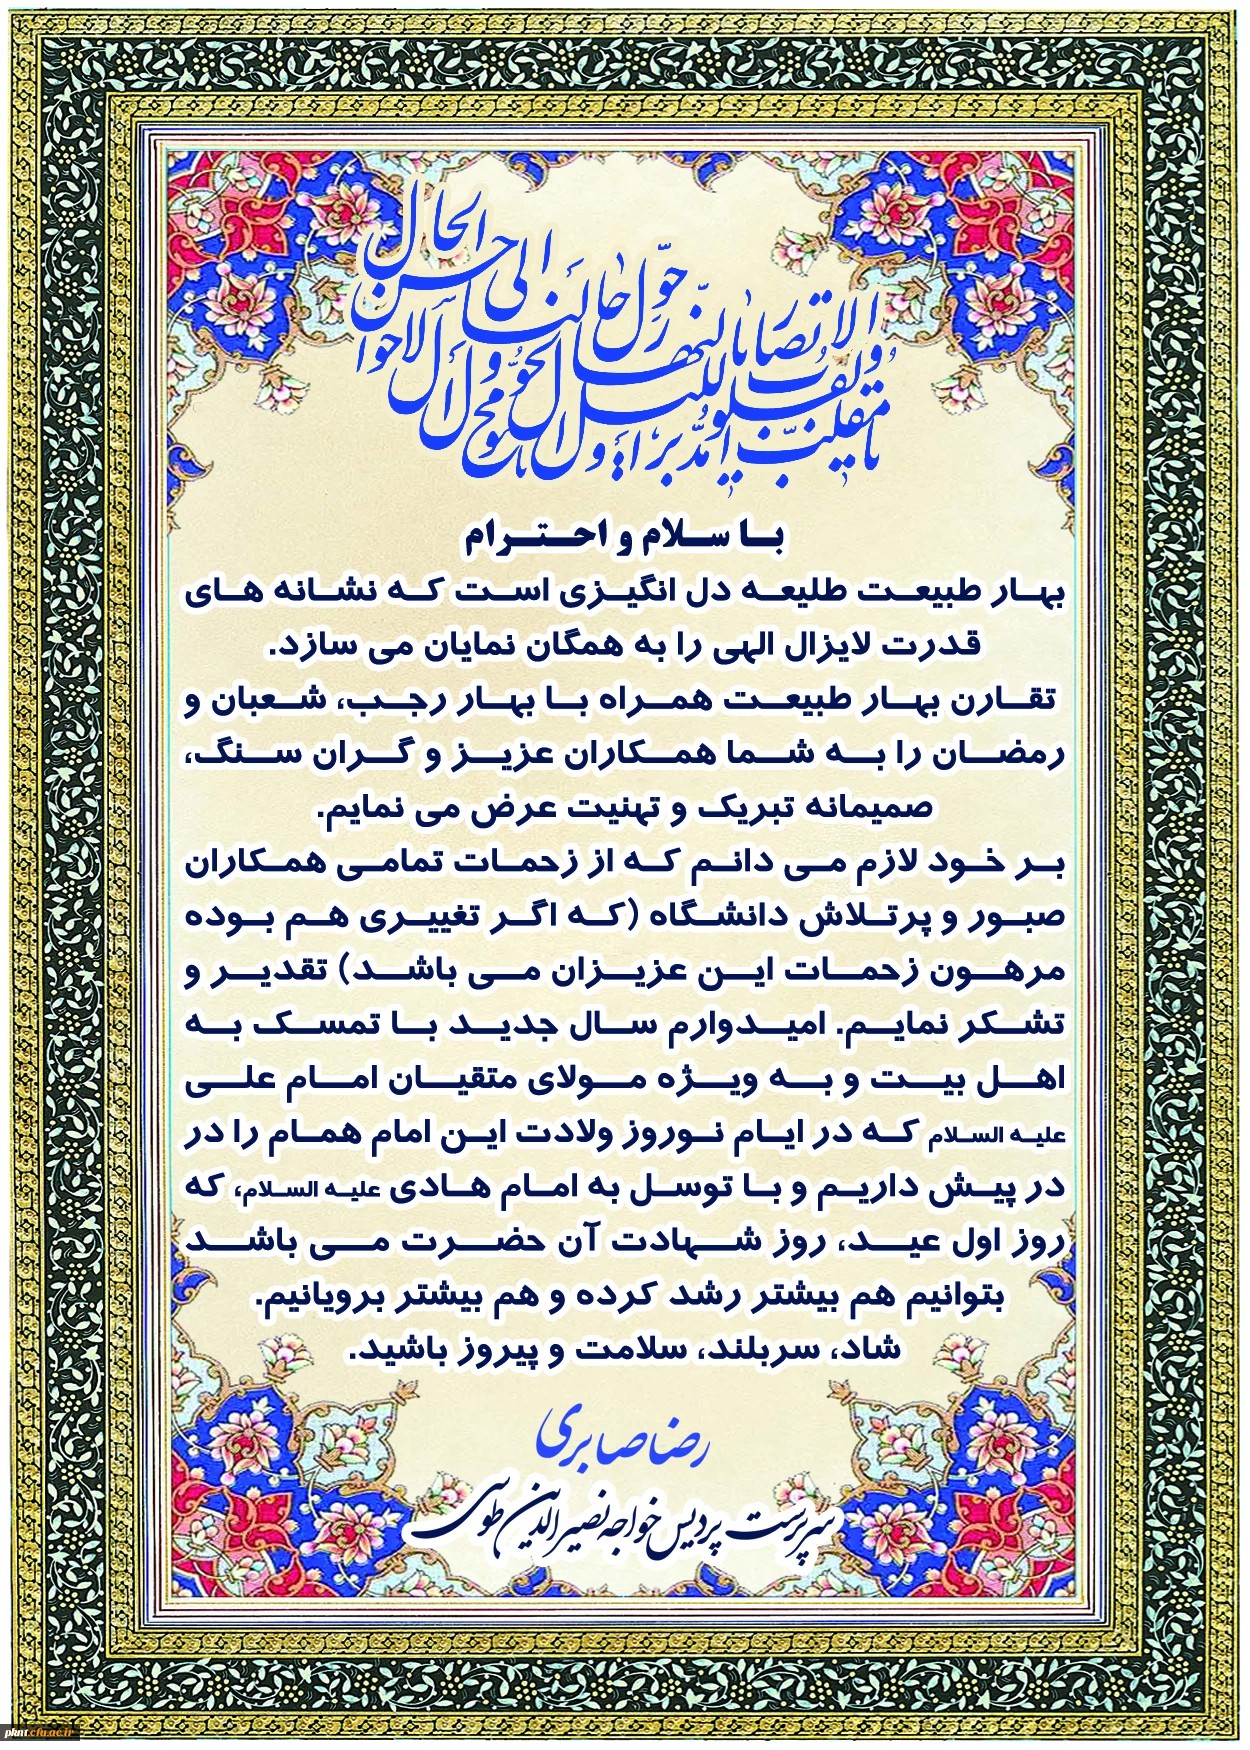 یا مقلب القلوب و الابصار
یا مدبر اللیل و النهار
یا محول الحول و الاحوال
حول حالنا الی احسن الحال
با سلام و احترام
بهار طبیعت طلیعه دل انگیزی است که نشانه های
قدرت لایزال الهی را به همگان نمایان می سازد.
تقارن بهار طبیعت همراه با بهار رجب، شعبان و
رمضان را به شما همکاران عزیز و گران سنگ،
صمیمانه تبریک و تهنیت عرض می نمایم.
بر خود لازم می دانم که از زحمات تمامی همکاران
صبور و پرتلاش دانشگاه (که اگر تغییری هم بوده
مرهون زحمات این عزیزان می باشد) تقدیر و
تشکر نمایم. امیدوارم سال جدید با تمسک به
اهل بیت و به ویژه مولای متقیان امام علی
علیه السلام که در ایام نوروز ولادت این امام همام را در
در پیش داریم و با توسل به امام هادی علیه السلام، که
روز اول عید، روز شهادت آن حضرت می باشد
بتوانیم هم بیشتر رشد کرده و هم بیشتر برویانیم.
شاد، سربلند، سلامت و پیروز باشید.
رضا صابری
سرپرست پردیس خواجه نصیرالدین طوسی
pknt.cfu.ac.ir